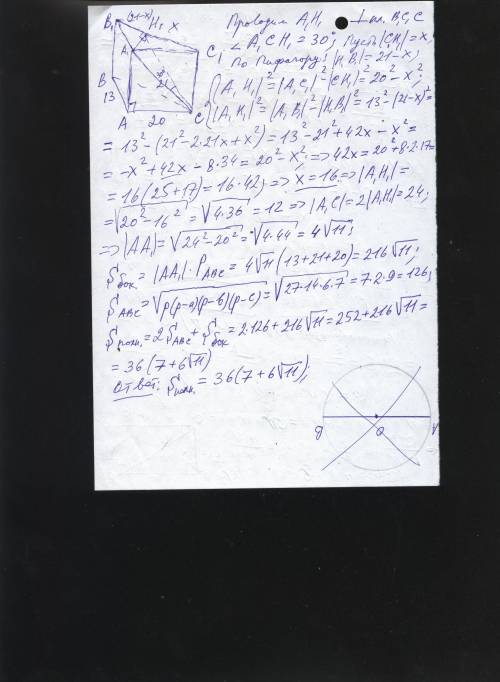 Проводим A₁H₁ ⊥ пл. B₁C₁C
∠A₁CH₁ = 30°; пусть |C₁H₁| = x,
По Пифагору: |H₁B₁| = 21-x;
{|A₁H₁|² = |A₁C₁|² - |C₁H₁|² = 20² - x²;
|A₁H₁|² = |A₁B₁|² - |H₁B₁|² = 13² - (21-x)² =
= 13² - (21² - 2·21x + x²) = 13² - 21² + 42x - x² =
= -x² + 42x - 8·34 = 20² - x²; => 42x = 20² + 8·2·17 =
= 16(25+17) = 16·42; => x = 16 => |A₁H₁| =
= √20² - 16² = √4·36 = 12 => |A₁C| = 2|A₁H₁| = 24;
=> |AA₁| = √24² - 20² = √4·44 = 4√11;
S бок = |AA₁| · P ABC = 4√11 (13+21+20) = 216√11;
S ABC = √p(p-a)(p-b)(p-c) = √27·14·6·7 = 7·2·9 = 126;
S полн. = 2S ABC + S бок = 2·126 + 216√11 = 252 + 216√11 =
= 36(7+6√11)
Ответ: S полн. = 36(7+6√11);
B₁
(21-x)
H₁
x
A₁
C₁
B
13
21
A
20
C